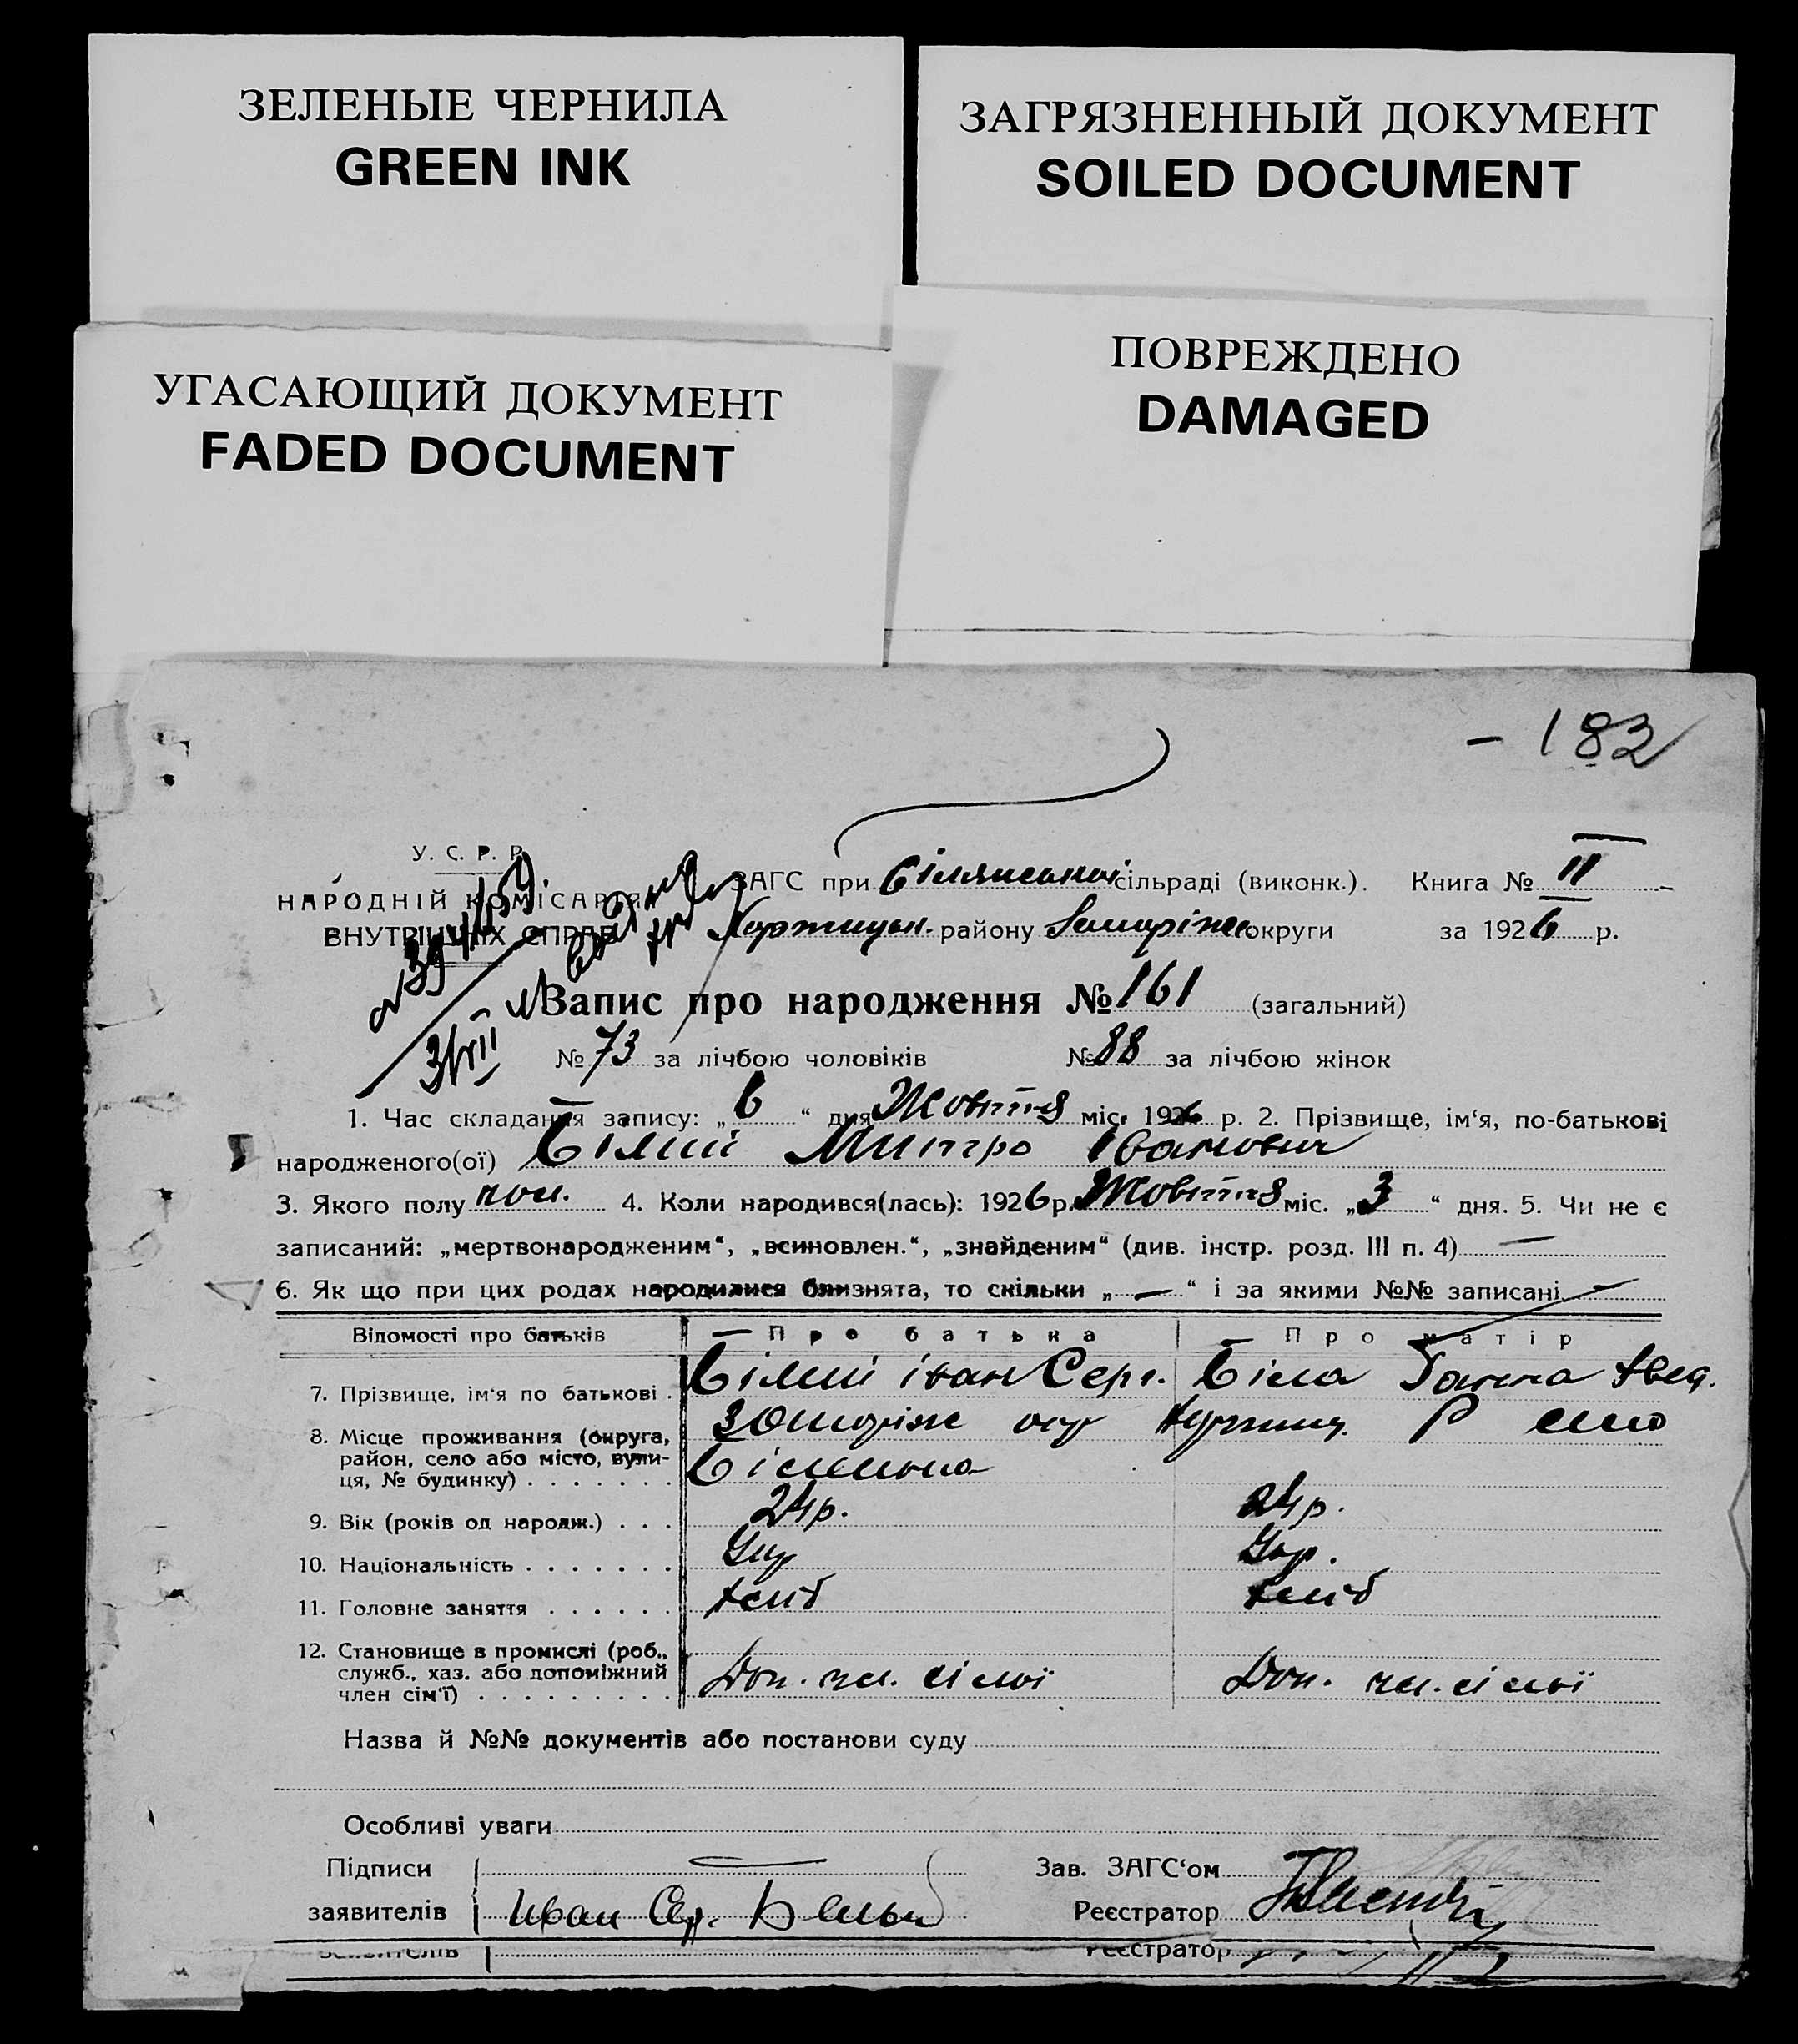 ЗЕЛЕНЫЕ ЧЕРНИЛА
GREEN INK
ЗАГРЯЗНЕННЫЙ ДОКУМЕНТ
SOILED DOCUMENT
УГАСАЮЩИЙ ДОКУМЕНТ
FADED DOCUMENT
ПОВРЕЖДЕНО
DAMAGED
– 182
У. С. Р. Р.
НАРОДНІЙ КОМІСАРІЯТ
ВНУТРІШНІХ СПРАВ
ЗАГС при сільраді (виконк.). Книга № II
району округи за 1926 р.
Запис про народження № 161 (загальний)
3/VII
№ 73 за лічбою чоловіків № 88 за лічбою жінок
1. Час складання запису: „ 6 “ дня Жовтня міс. 1926 р. 2. Прізвище, ім‘я, по-батькові
народженого(ої) Білий Митро Іванович
3. Якого полу чол. 4. Коли народився(лась): 1926 р. Жовтня міс. „ 3 “ дня. 5. Чи не є
записаний: „мертвонародженим“, „всиновлен.“, „знайденим“ (див. інстр. розд. III п. 4) —
6. Як що при цих родах народилися близнята, то скільки „ — “ і за якими №№ записані —
Відомості про батьків Про батька Про матір
7. Прізвище, ім‘я по батькові . Білий Іван Серг. Біла Ганна
8. Місце проживання (округа,
район, село або місто, вули-
ця, № будинку) . . . . . . .
9. Вік (років од народж.) . . . 24 р. 24 р.
10. Національність . . . . . . . Укр Укр.
11. Головне заняття . . . . . . хліб хліб
12. Становище в промислі (роб.,
служб., хаз. або допоміжний
член сім‘ї) . . . . . . . . . Доп. чл. сімьї Доп. чл. сімьї
Назва й №№ документів або постанови суду
Особливі уваги
Підписи Зав. ЗАГС‘ом
заявителів Иван Сер. Белый Реєстратор
заявителів Реєстратор